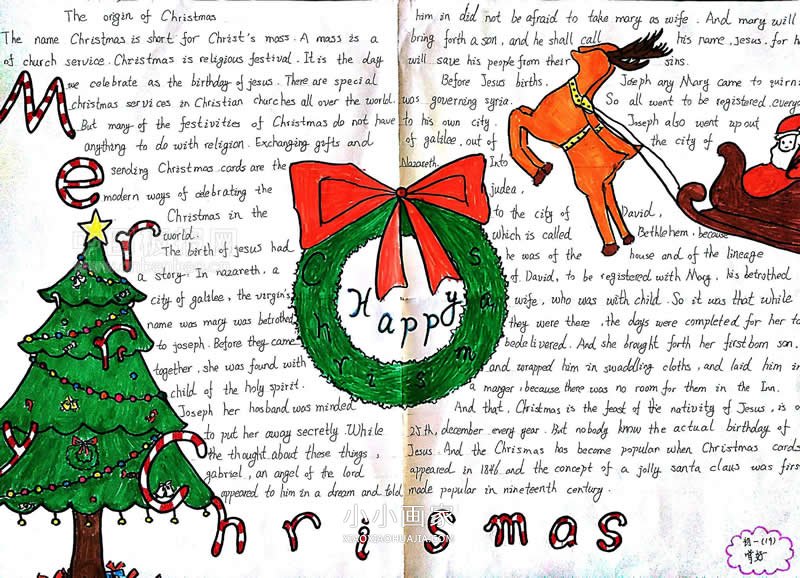 The origin of Christmas
The name Christmas is short for Christ's mass. A mass is a
of church service. Christmas is religious festival. It is the day
we celebrate as the birthday of jesus. There are special
christmas services in Christian churches all over the world.
But many of the festivities of Christmas do not have
anything to do with religion. Exchanging gifts and
sending Christmas cards are the
modern ways of celebrating the
Christmas in the
world.
The birth of jesus had
a story. In nazareth, a
city of galilee, the virgin's
name was mary was betrothed
to joseph. Before they came
together, she was found with
child of the holy spirit.
Joseph her hosband was minded
to put her away secretly. While
the thought about these things,
gabriel, an angel of the lord
appeared to him in a dream and told
him in did not be afraid to take mary as wife. And mary will
bring forth a son, and he shall call his name, jesus, for h
will save his people from their sins.
Before Jesus births, Joseph any Mary came to
was governing syria. So all went to be registered. everyo
to his own city. Joseph also went up out
of galilee, out of the city of
Nazareth. Into
judea,
to the city of David,
which is called Bethlehem, because
he was of the house and of the lineage
of David, to be registered with Mary, his betrothed
wife, who was with child. So it was that while
they were there, the days were completed for her to
bedelivered. And she brought forth her firstborn son,
and wrapped him in swaddling cloths, and laid him in
a manger, because there was no room for them in the Inn.
And that, Christmas is the feast of the nativity of Jesus, is o
25th, december every year. But nobody know the actual birthday of
Jesus. And the Chrismas has become popular when Christmas cards
appeared in 1846 and the concept of a jolly santa claus was first
made popular in nineteenth century.
Merry
Christmas
Happy
Chrismas
小小画家
XIAOXIAOHUAJIA.COM
初一(19)